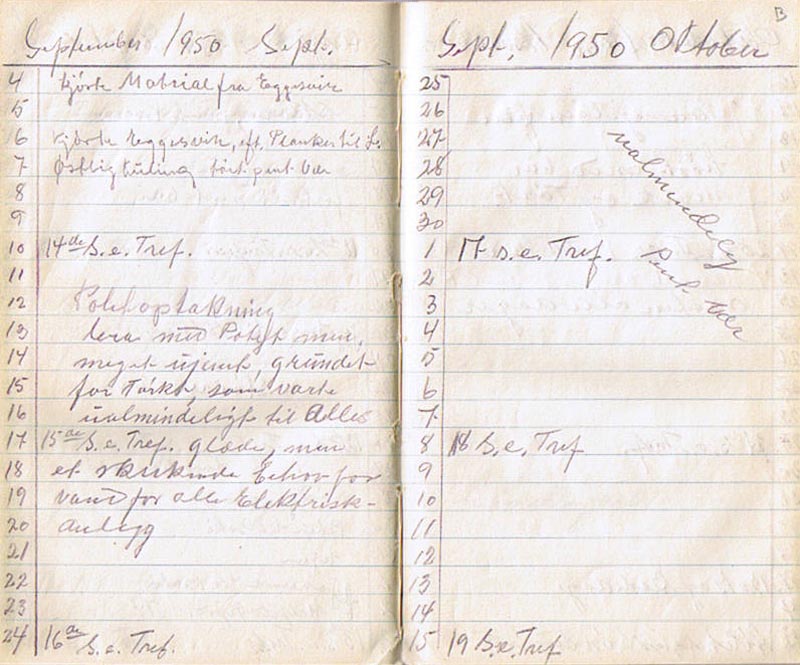 September 1950 Sept.
4 kjørte Matrial fra Eggesvik
5
6 kjørte Eggesvik, eft. Planker til
7 Østlig kuling tørt pent Vær
8
9
10 14de S. e. Tref.
11
12 Potetoptakning
13 bra med Potet men,
14 meget ujevnt, grundet
15 for Tørke, som varte
16 ualmindeligt til Alles
17 15de S. e. Tref. glæde, men
18 et skrikende Behov for
19 vand for alle Elektrisk-
20 anlegg
21
22
23
24 16de S. e. Tref.
B
Sept. 1950 Oktober
25
26
27
28
29
30
ualmindelig
Pent Vær
1 17 S. e. Tref.
2
3
4
5
6
7
8 18 S. e. Tref
9
10
11
12
13
14
15 19 S. e. Tref